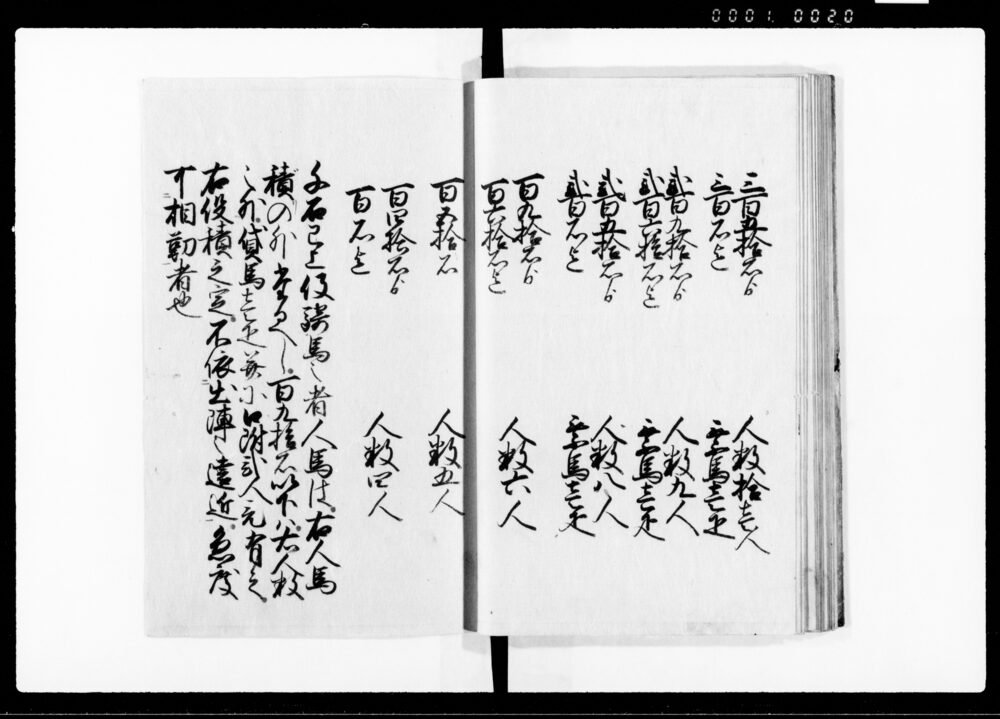 0001 0020
三百五拾石ゟ
三百石迄
人数拾壱人
乗馬壱疋
弐百九拾石ゟ
弐百六拾石迄
人数九人
乗馬壱疋
弐百五拾石ゟ
弐百石迄
人数八人
乗馬壱疋
百九拾石ゟ
百六拾石迄
人数六人
百五拾石
人数五人
百四拾石ゟ
百石迄
人数四人
千石已上役騎馬之者人馬は右人馬
積の外たるへし百九拾石以下ハ右人数
之外貸馬壱疋并小口附弐人充有之
右役積之定不依出陣之遠近急度
可相勤者也